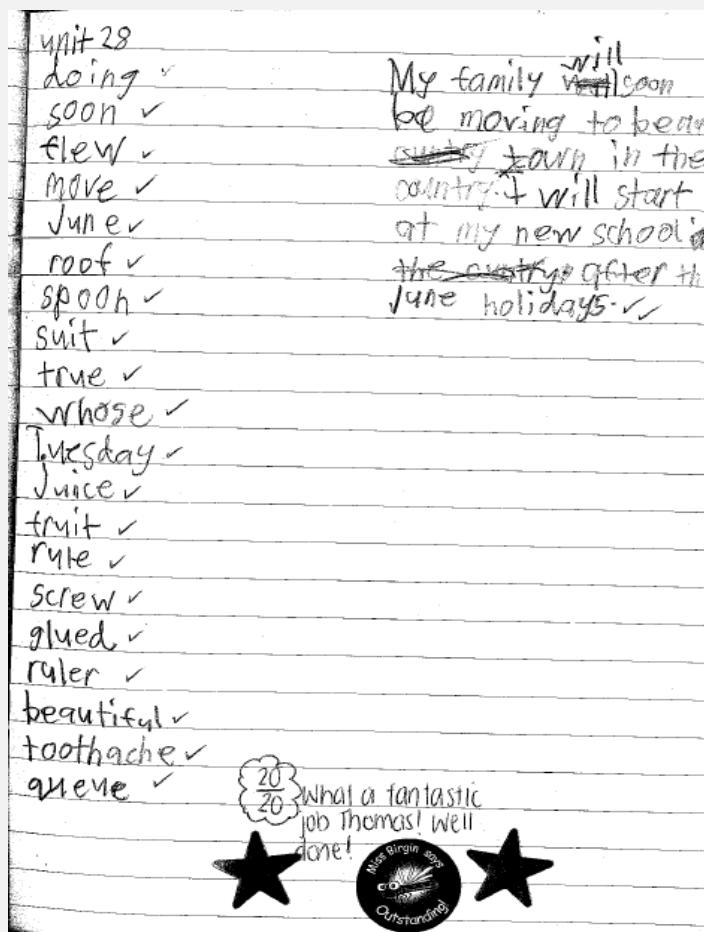 unit 28
doing ✓
soon ✓
flew ✓
move ✓
June ✓
roof ✓
spoon ✓
suit ✓
true ✓
whose ✓
Tuesday ✓
Juice ✓
fruit ✓
rule ✓
screw ✓
glued ✓
ruler ✓
beautiful ✓
toothache ✓
queue ✓
will
My family soon
be moving to
town in the
country. I will start
at my new school
after
June holidays. ✓✓
20
20
What a fantastic
job Thomas! Well
done!
Miss Birgin says
Outstanding!